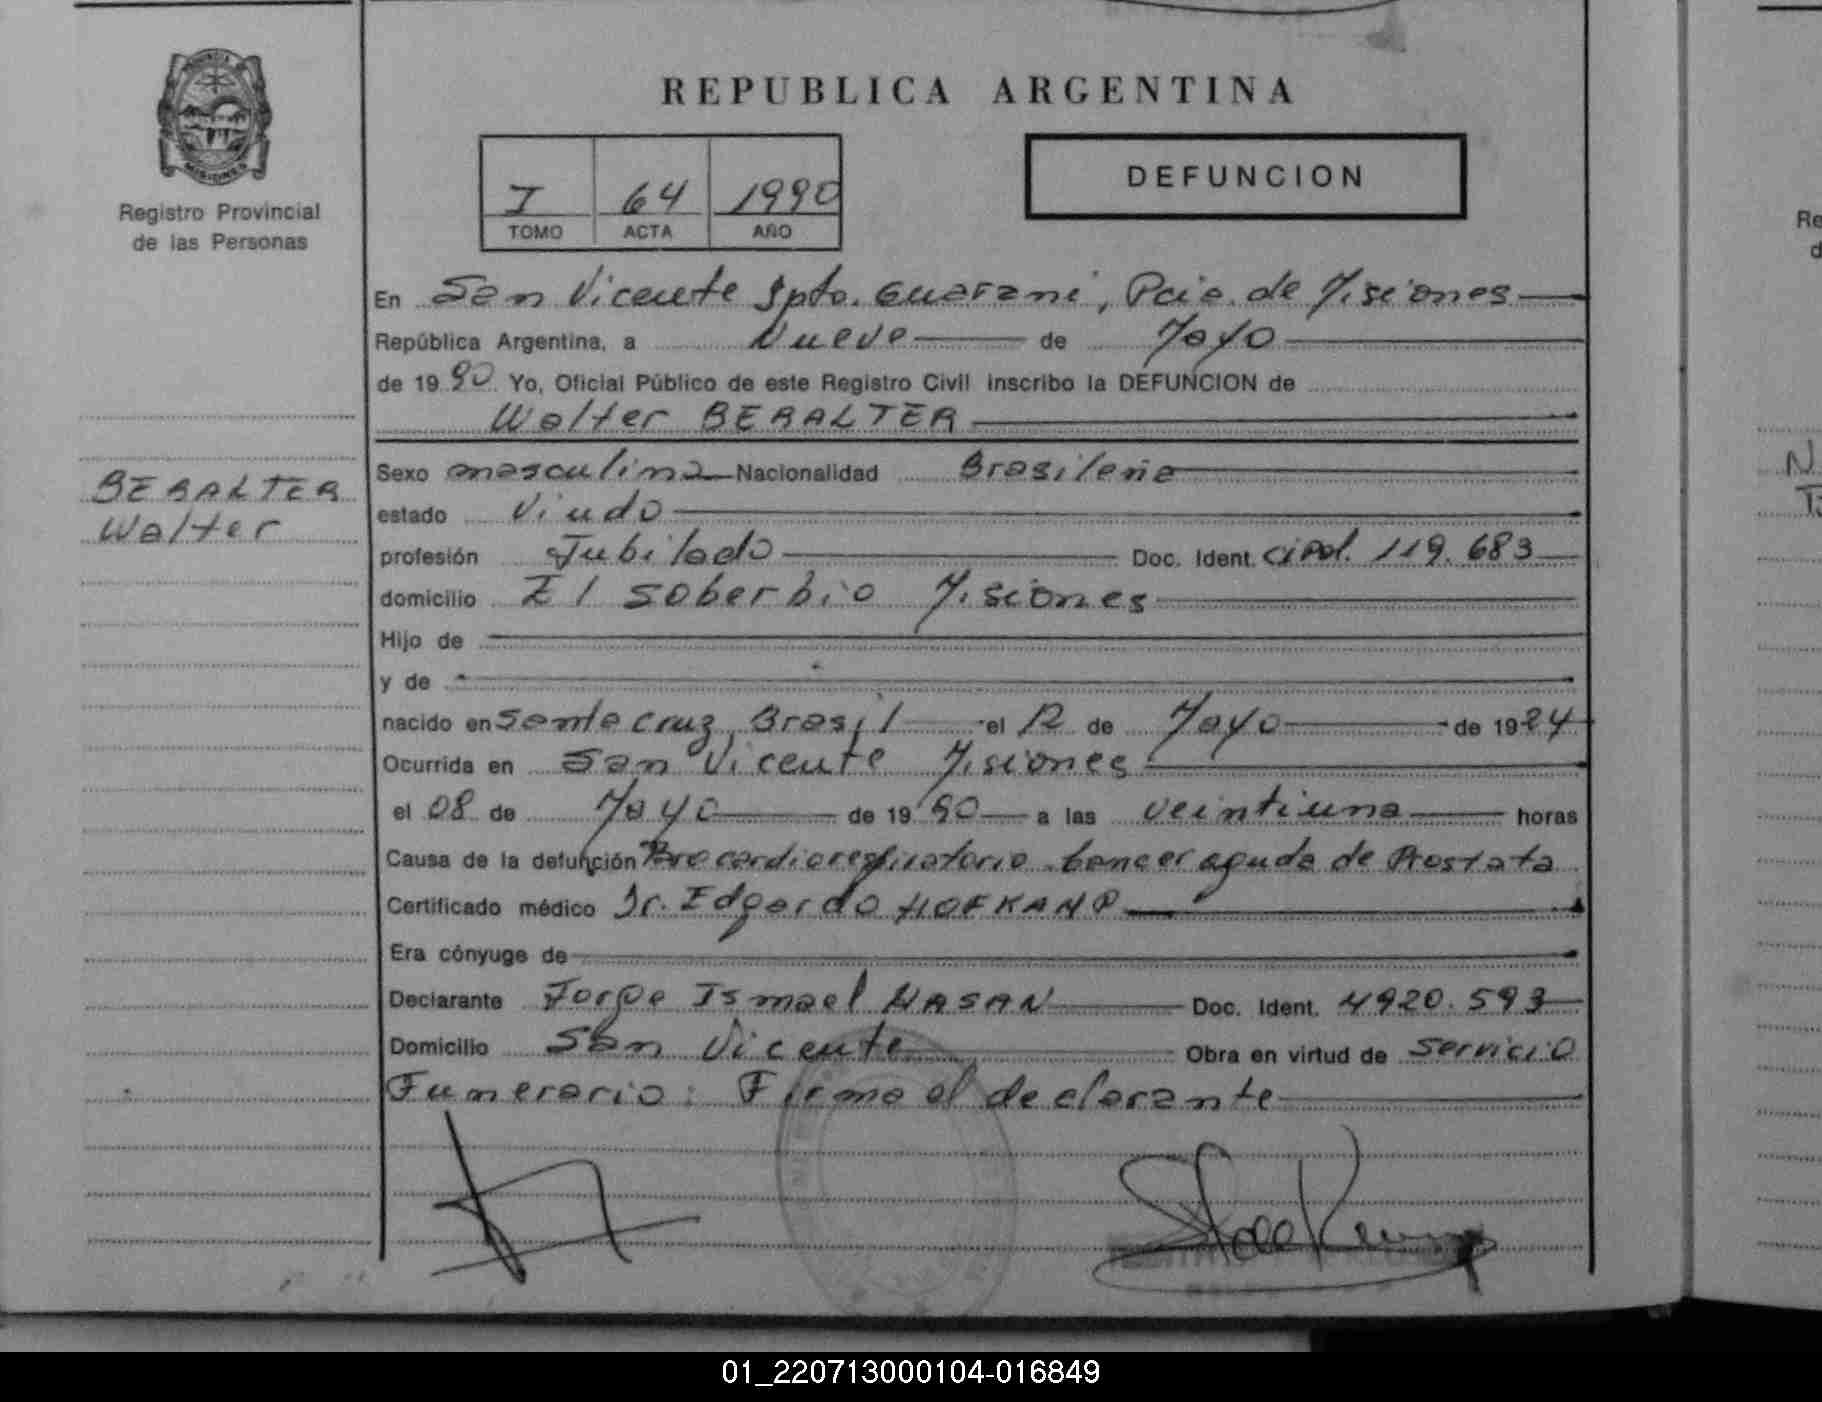 REPUBLICA ARGENTINA
PROVINCIA
MISIONES
Registro Provincial
de las Personas
I 64 1990
TOMO ACTA AÑO
DEFUNCION
En San Vicente Dpto. Guarani, Pcia. de Misiones
República Argentina, a Nueve de Mayo
de 1990 Yo, Oficial Público de este Registro Civil inscribo la DEFUNCION de
Walter BERALTER
BERALTER
Walter
Sexo masculino Nacionalidad Brasileña
estado Viudo
profesión Jubilado Doc. Ident. CiPol. 119.683
domicilio El Soberbio Misiones
Hijo de
y de
nacido en Santa Cruz, Brasil el 12 de Mayo de 1924
Ocurrida en San Vicente Misiones
el 08 de Mayo de 1990 a las veintiuna horas
Causa de la defunción Paro cardiorespiratorio. Cancer aguda de Prostata
Certificado médico Dr. Edgardo HOFKAMP
Era cónyuge de
Declarante Jorge Ismael NASAN Doc. Ident. 4920.593
Domicilio San Vicente Obra en virtud de Servicio
Funerario: Firma el declarante
Re
d
N
01_220713000104-016849